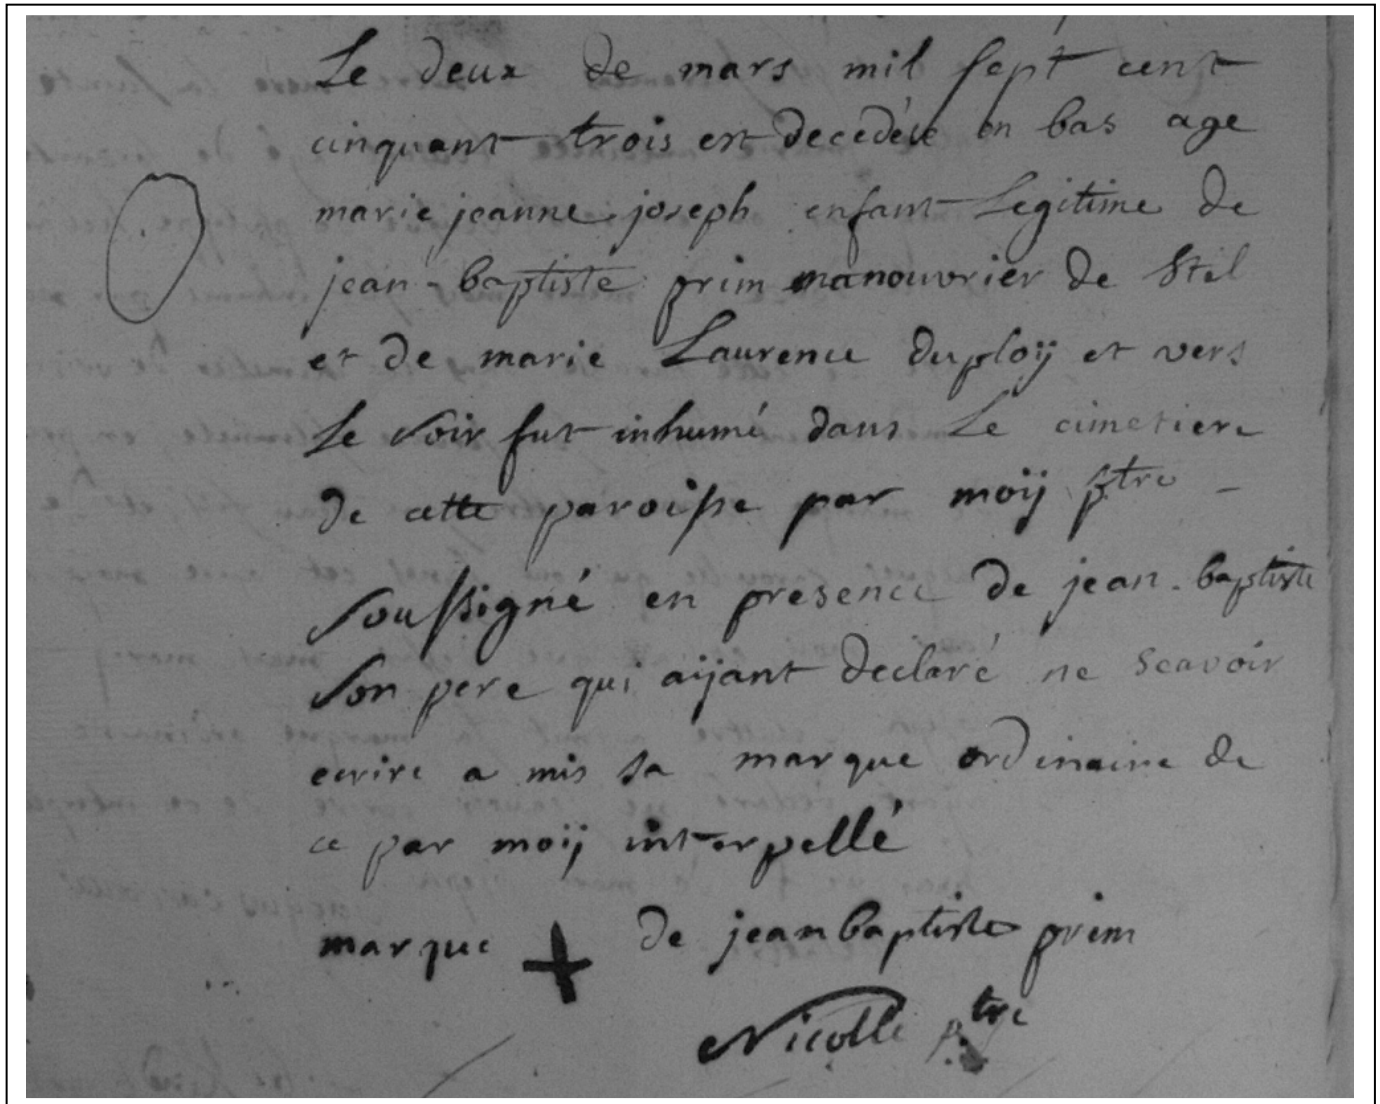 Le deux de mars mil sept cent
cinquant trois est decedéé en bas age
marie jeanne joseph enfant Legitime de
jean-baptiste prim manouvrier de Stil
et de marie Laurence duploÿ et vers
Le soir fut inhumé dans Le cimetiere
de cette paroisse par moÿ ptre -
soussigné en presence de jean-baptiste
son pere qui aÿant declaré ne scavoir
ecrire a mis sa marque ordinaire de
ce par moÿ interpellé
marque + de jean baptiste prim
Nicolle ptre